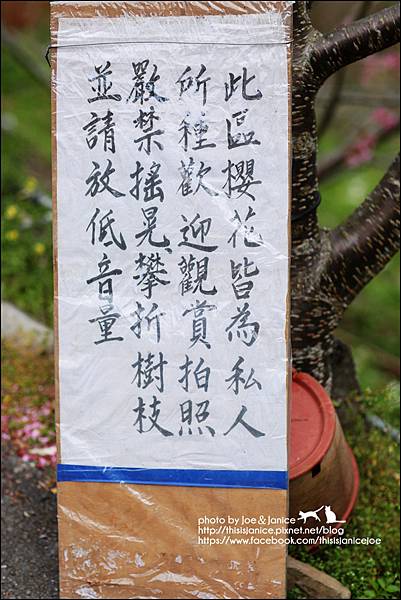 此區櫻花皆為私人
所種歡迎觀賞拍照
嚴禁搖晃攀折樹枝
並請放低音量
photo by Joe & Janice
http://thisisjanice.pixnet.net/blog
https://www.facebook.com/thisisjanicejoe